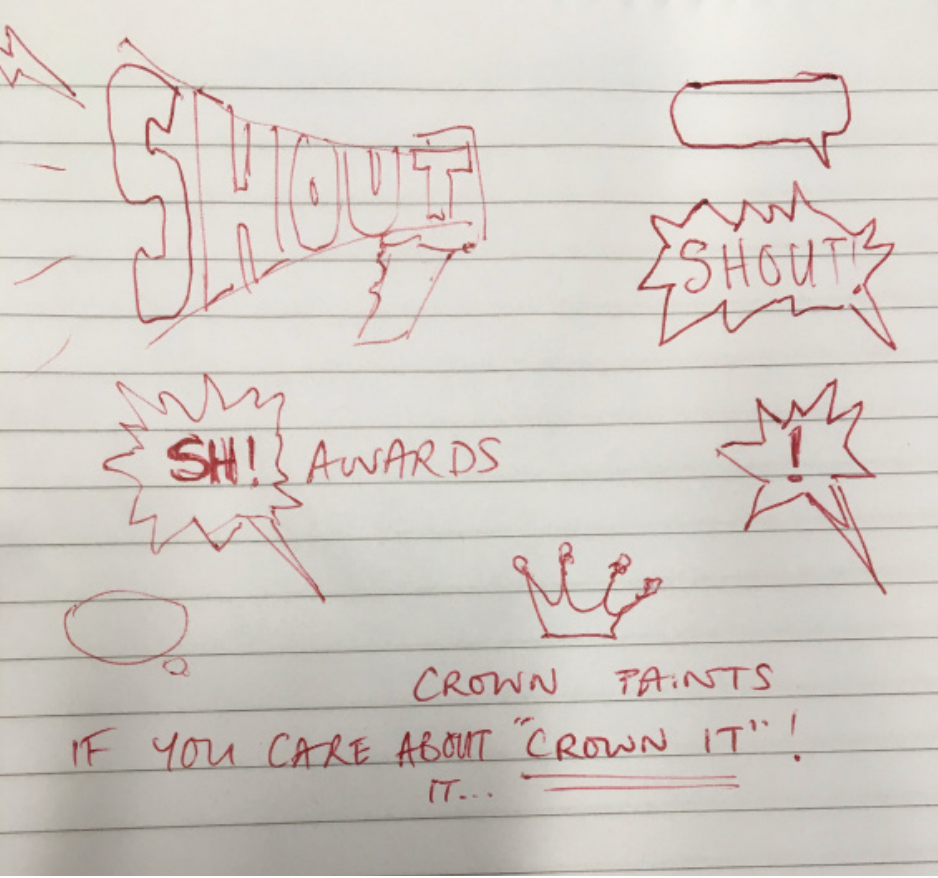 SHOUT
SHOUT!
SH! AWARDS
!
CROWN PAINTS
IF YOU CARE ABOUT "CROWN IT"!
IT...